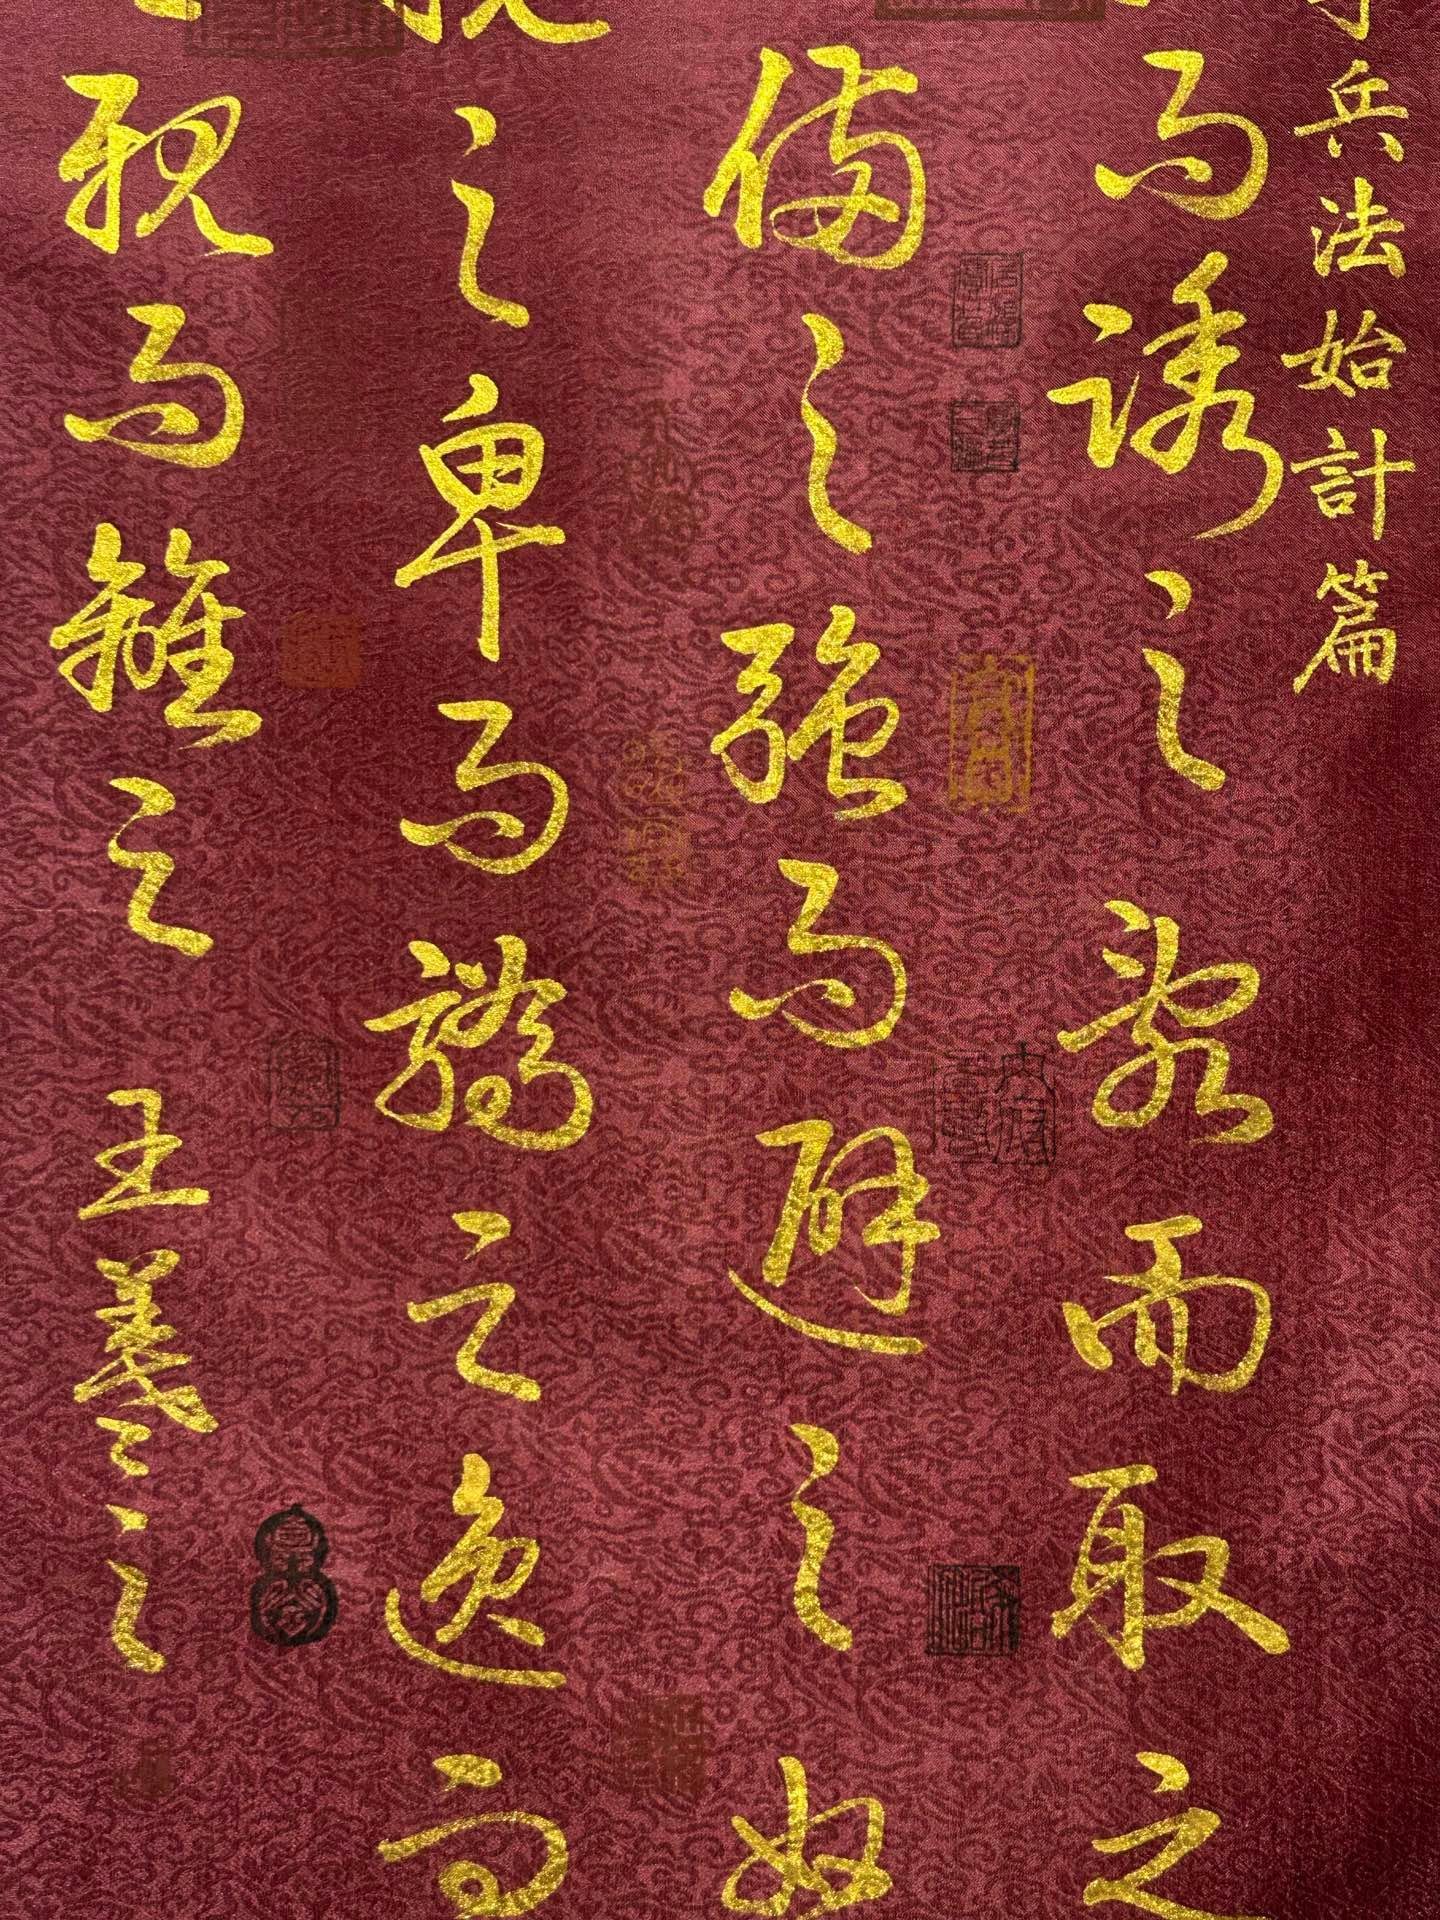 兵法始計篇
而誘之亂而取之
備之強而避之
之卑而驕之逸而
親而離之王羲之